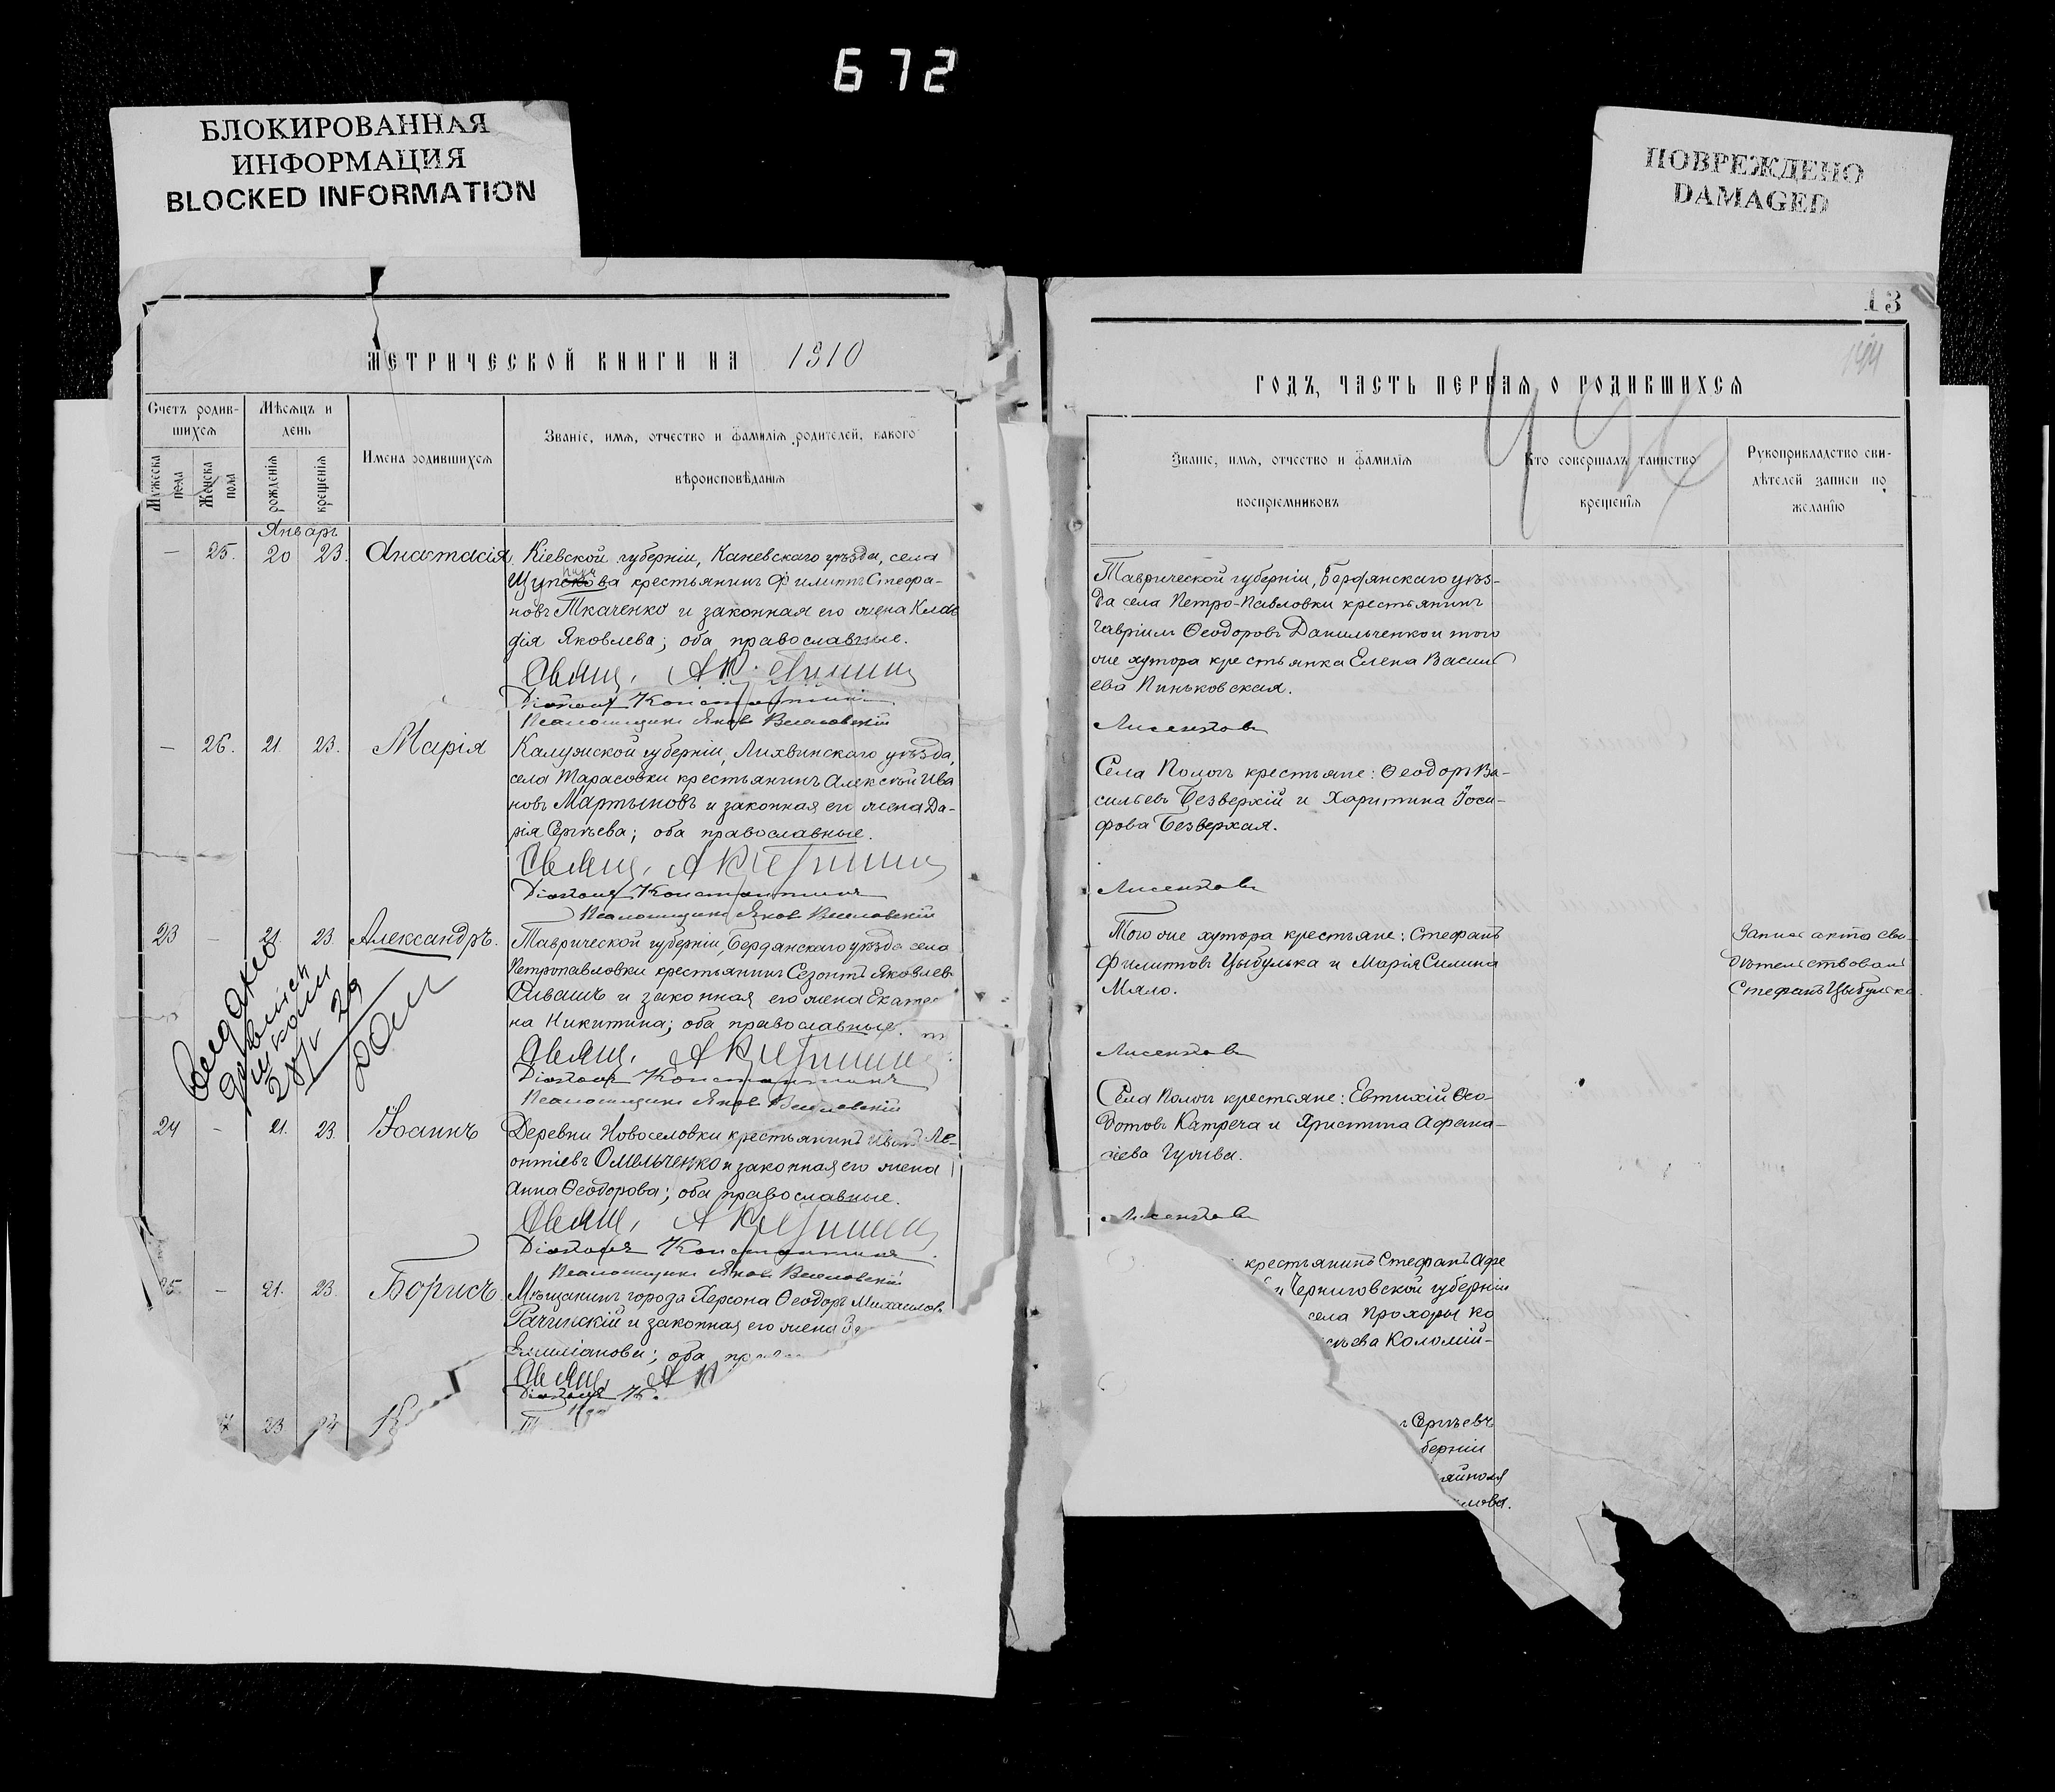 672
БЛОКИРОВАННАЯ
ИНФОРМАЦИЯ
BLOCKED INFORMATION
ПОВРЕЖДЕНО
DAMAGED
МЕТРИЧЕСКОЙ КНИГИ НА 1910
Счетъ родив-
шихся
Мѣсяцъ и
день
Мужеска
пола
Женска
пола
рожденія
крещенія
Имена родившихся
Званіе, имя, отчество и фамилія родителей, какого
вѣроисповѣданія
Январь
— 25. 20 23. Анастасія
Кіевской губерніи, Каневскаго уѣзда, села
крестьянинъ Филиппъ Стефа-
новъ Ткаченко и законная его жена Клав
дія Яковлева; оба православные.
Свящ.
Діаконъ Константинъ
Псаломщикъ Яковъ Веселовскій
— 26. 21. 23. Марія
Калужской губерніи, Лихвинскаго уѣзда,
села Тарасовки крестьянинъ Алексѣй Ива
новъ Мартыновъ и законная его жена Да-
рія Сергѣева; оба православные.
Свящ.
Діаконъ Константинъ
Псаломщикъ Яковъ Веселовскій
23 — 21. 23. Александръ.
Таврической губерніи, Бердянскаго уѣзда села
Петропавловки крестьянинъ Созонтъ Яковлев
Сивашъ и законная его жена Екате
на Никитина; оба православные.
Свящ.
Діаконъ Константинъ
Псаломщикъ Яковъ Веселовскій
24 — 21. 23. Іоаннъ
Деревни Новоселовки крестьянинъ Иванъ Ле-
онтіевъ Омельченко и законная его жена
Анна Ѳеодорова; оба православные.
Свящ.
Діаконъ Константинъ
Псаломщикъ Яковъ Веселовскій
25 — 21. 23. Борисъ.
Мѣщанинъ города Херсона Ѳеодоръ Михаиловъ
Рачинскій и законная его жена
Емиліанова; оба
Свящ.
Діаконъ
7 23 24
13
ГОДЪ, ЧАСТЬ ПЕРВАЯ О РОДИВШИХСЯ
Званіе, имя, отчество и фамилія
воспріемниковъ
Кто совершалъ таинство
крещенія
Рукоприкладство сви-
дѣтелей записи по
желанію
Таврической губерніи, Бердянскаго уѣз-
да села Петро-Павловки крестьянинъ
Гавріилъ Ѳеодоровъ Данильченко и того
же хутора крестьянка Елена Василь
ева Пиньковская.
Села Пологъ крестьяне: Ѳеодоръ Ва-
сильевъ Безверхій и Харитина Іоси-
фова Безверхая.
Того же хутора крестьяне: Стефанъ
Филипповъ Цыбулька и Марія Силина
Мяло.
Записъ акта сви
дѣтельствовалъ
Стефанъ Цыбулька.
Села Пологъ крестьяне: Евтихій Ѳео-
дотовъ Катреча и Христина Афана-
сіева Гужва.
крестьянинъ Стефанъ Афа
Черниговской губерніи
села Прохоры ко
сьева Коломій-
Сергѣевъ
берніи
яйполя